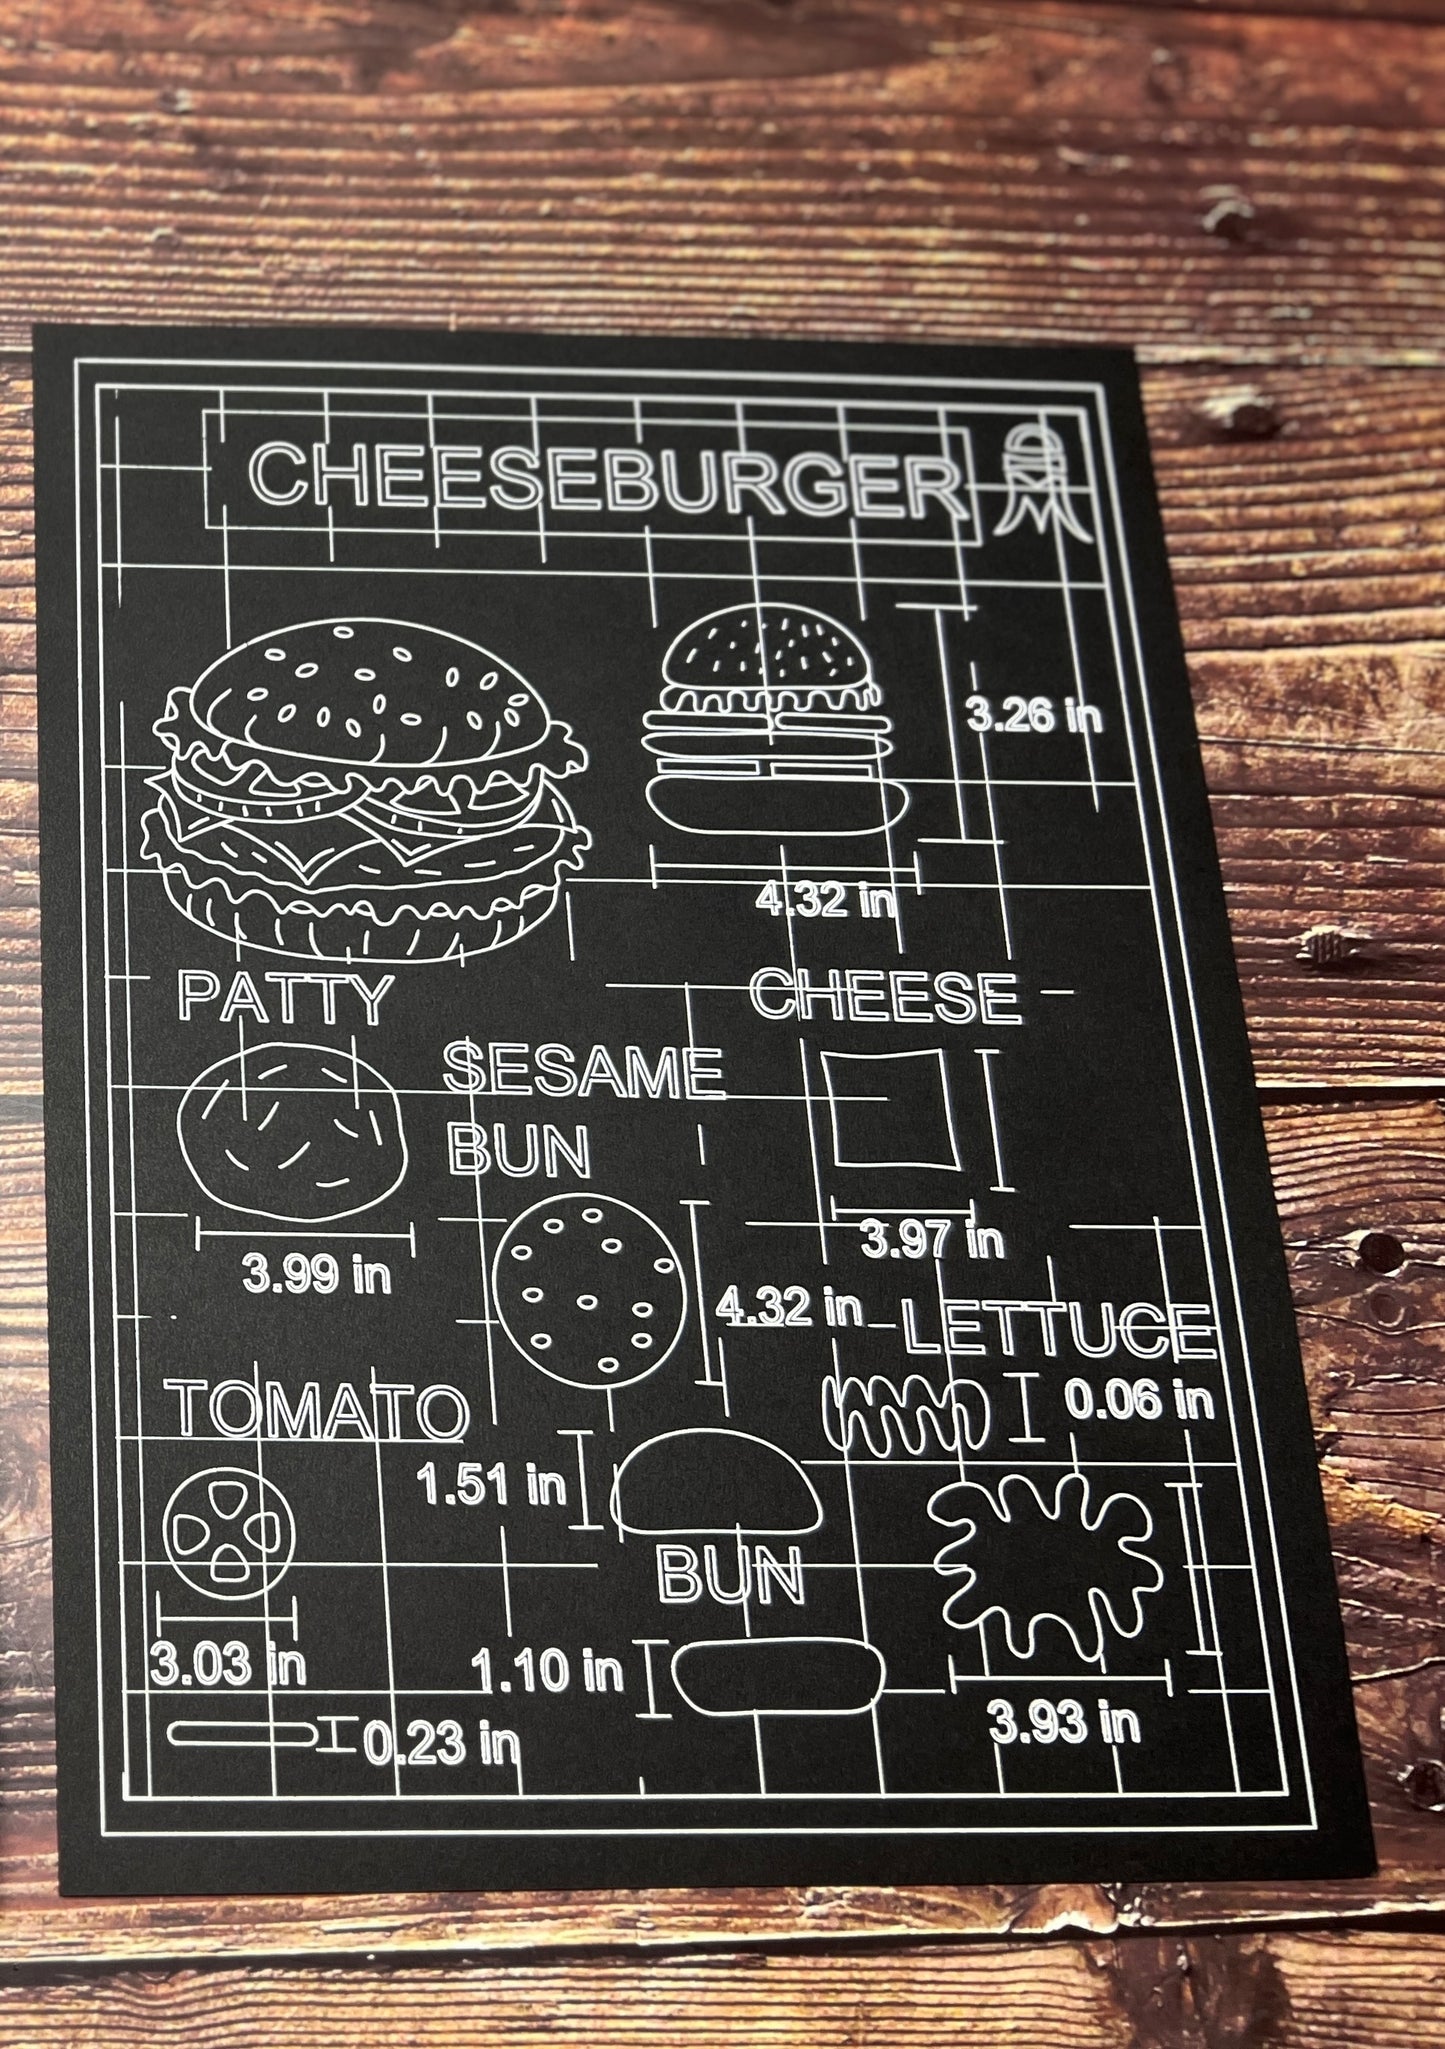 CHEESEBURGER
3.26 in
4.32 in
PATTY
3.99 in
SESAME
BUN
4.32 in
CHEESE
3.97 in
LETTUCE
0.06 in
3.93 in
TOMATO
3.03 in
0.23 in
1.51 in
BUN
1.10 in